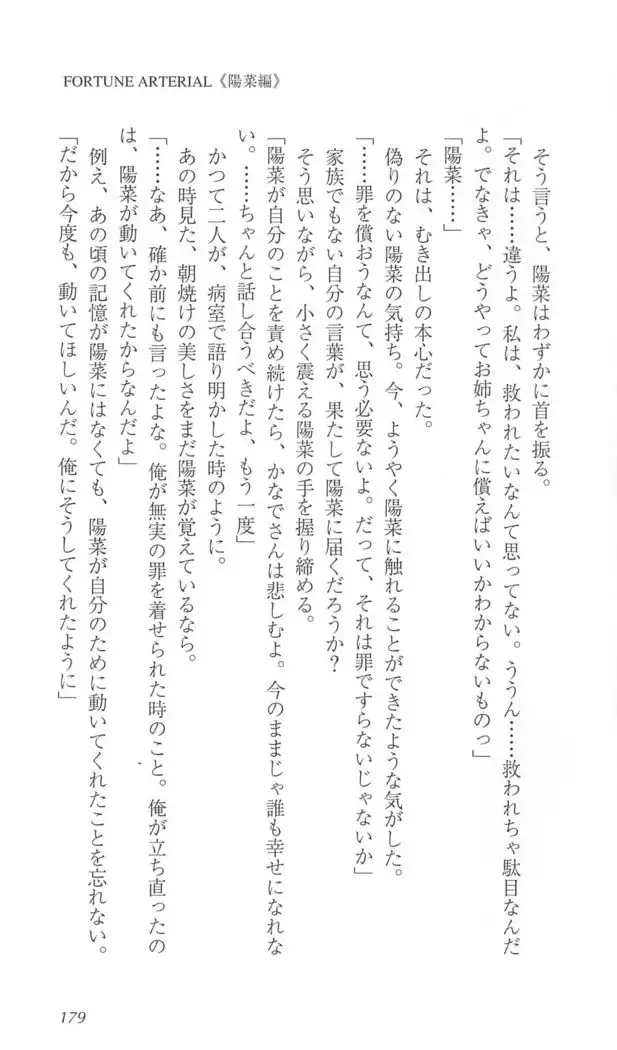 FORTUNE ARTERIAL《陽菜編》
そう言うと、陽菜はわずかに首を振る。
「それは……違うよ。私は、救われたいなんて思ってない。ううん……救われちゃ駄目なんだ
よ。でなきゃ、どうやってお姉ちゃんに償えばいいかわからないものっ」
「陽菜……」
それは、むき出しの本心だった。
偽りのない陽菜の気持ち。今、ようやく陽菜に触れることができたような気がした。
「……罪を償おうなんて、思う必要ないよ。だって、それは罪ですらないじゃないか」
家族でもない自分の言葉が、果たして陽菜に届くだろうか？
そう思いながら、小さく震える陽菜の手を握り締める。
「陽菜が自分のことを責め続けたら、かなでさんは悲しむよ。今のままじゃ誰も幸せになれな
い。……ちゃんと話し合うべきだよ、もう一度」
かつて二人が、病室で語り明かした時のように。
あの時見た、朝焼けの美しさをまだ陽菜が覚えているなら。
「……なあ、確か前にも言ったよな。俺が無実の罪を着せられた時のこと。俺が立ち直ったの
は、陽菜が動いてくれたからなんだよ」
例え、あの頃の記憶が陽菜にはなくても、陽菜が自分のために動いてくれたことを忘れない。
「だから今度も、動いてほしいんだ。俺にそうしてくれたように」
179